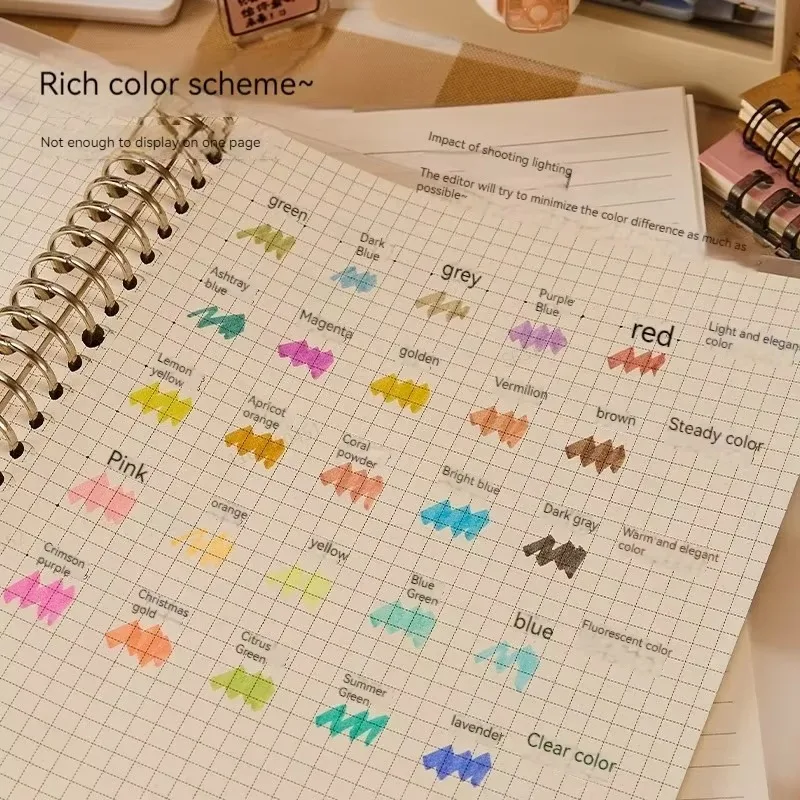 Rich color scheme~
Not enough to display on one page
Impact of shooting lighting
The editor will try to minimize the color difference as much as
possible~
green
Dark
Blue
grey
Purple
Blue
red
Light and elegan
color
Ashtray
blue
Magenta
golden
Vermilion
brown
Steady color
Lemon
yellow
Apricot
orange
Coral
powder
Bright blue
Dark gray
Warm and elegant
color
Pink
orange
yellow
Blue
Green
blue
Fluorescent color
Crimson
purple
Christmas
gold
Citrus
Green
Summer
Green
lavender
Clear color